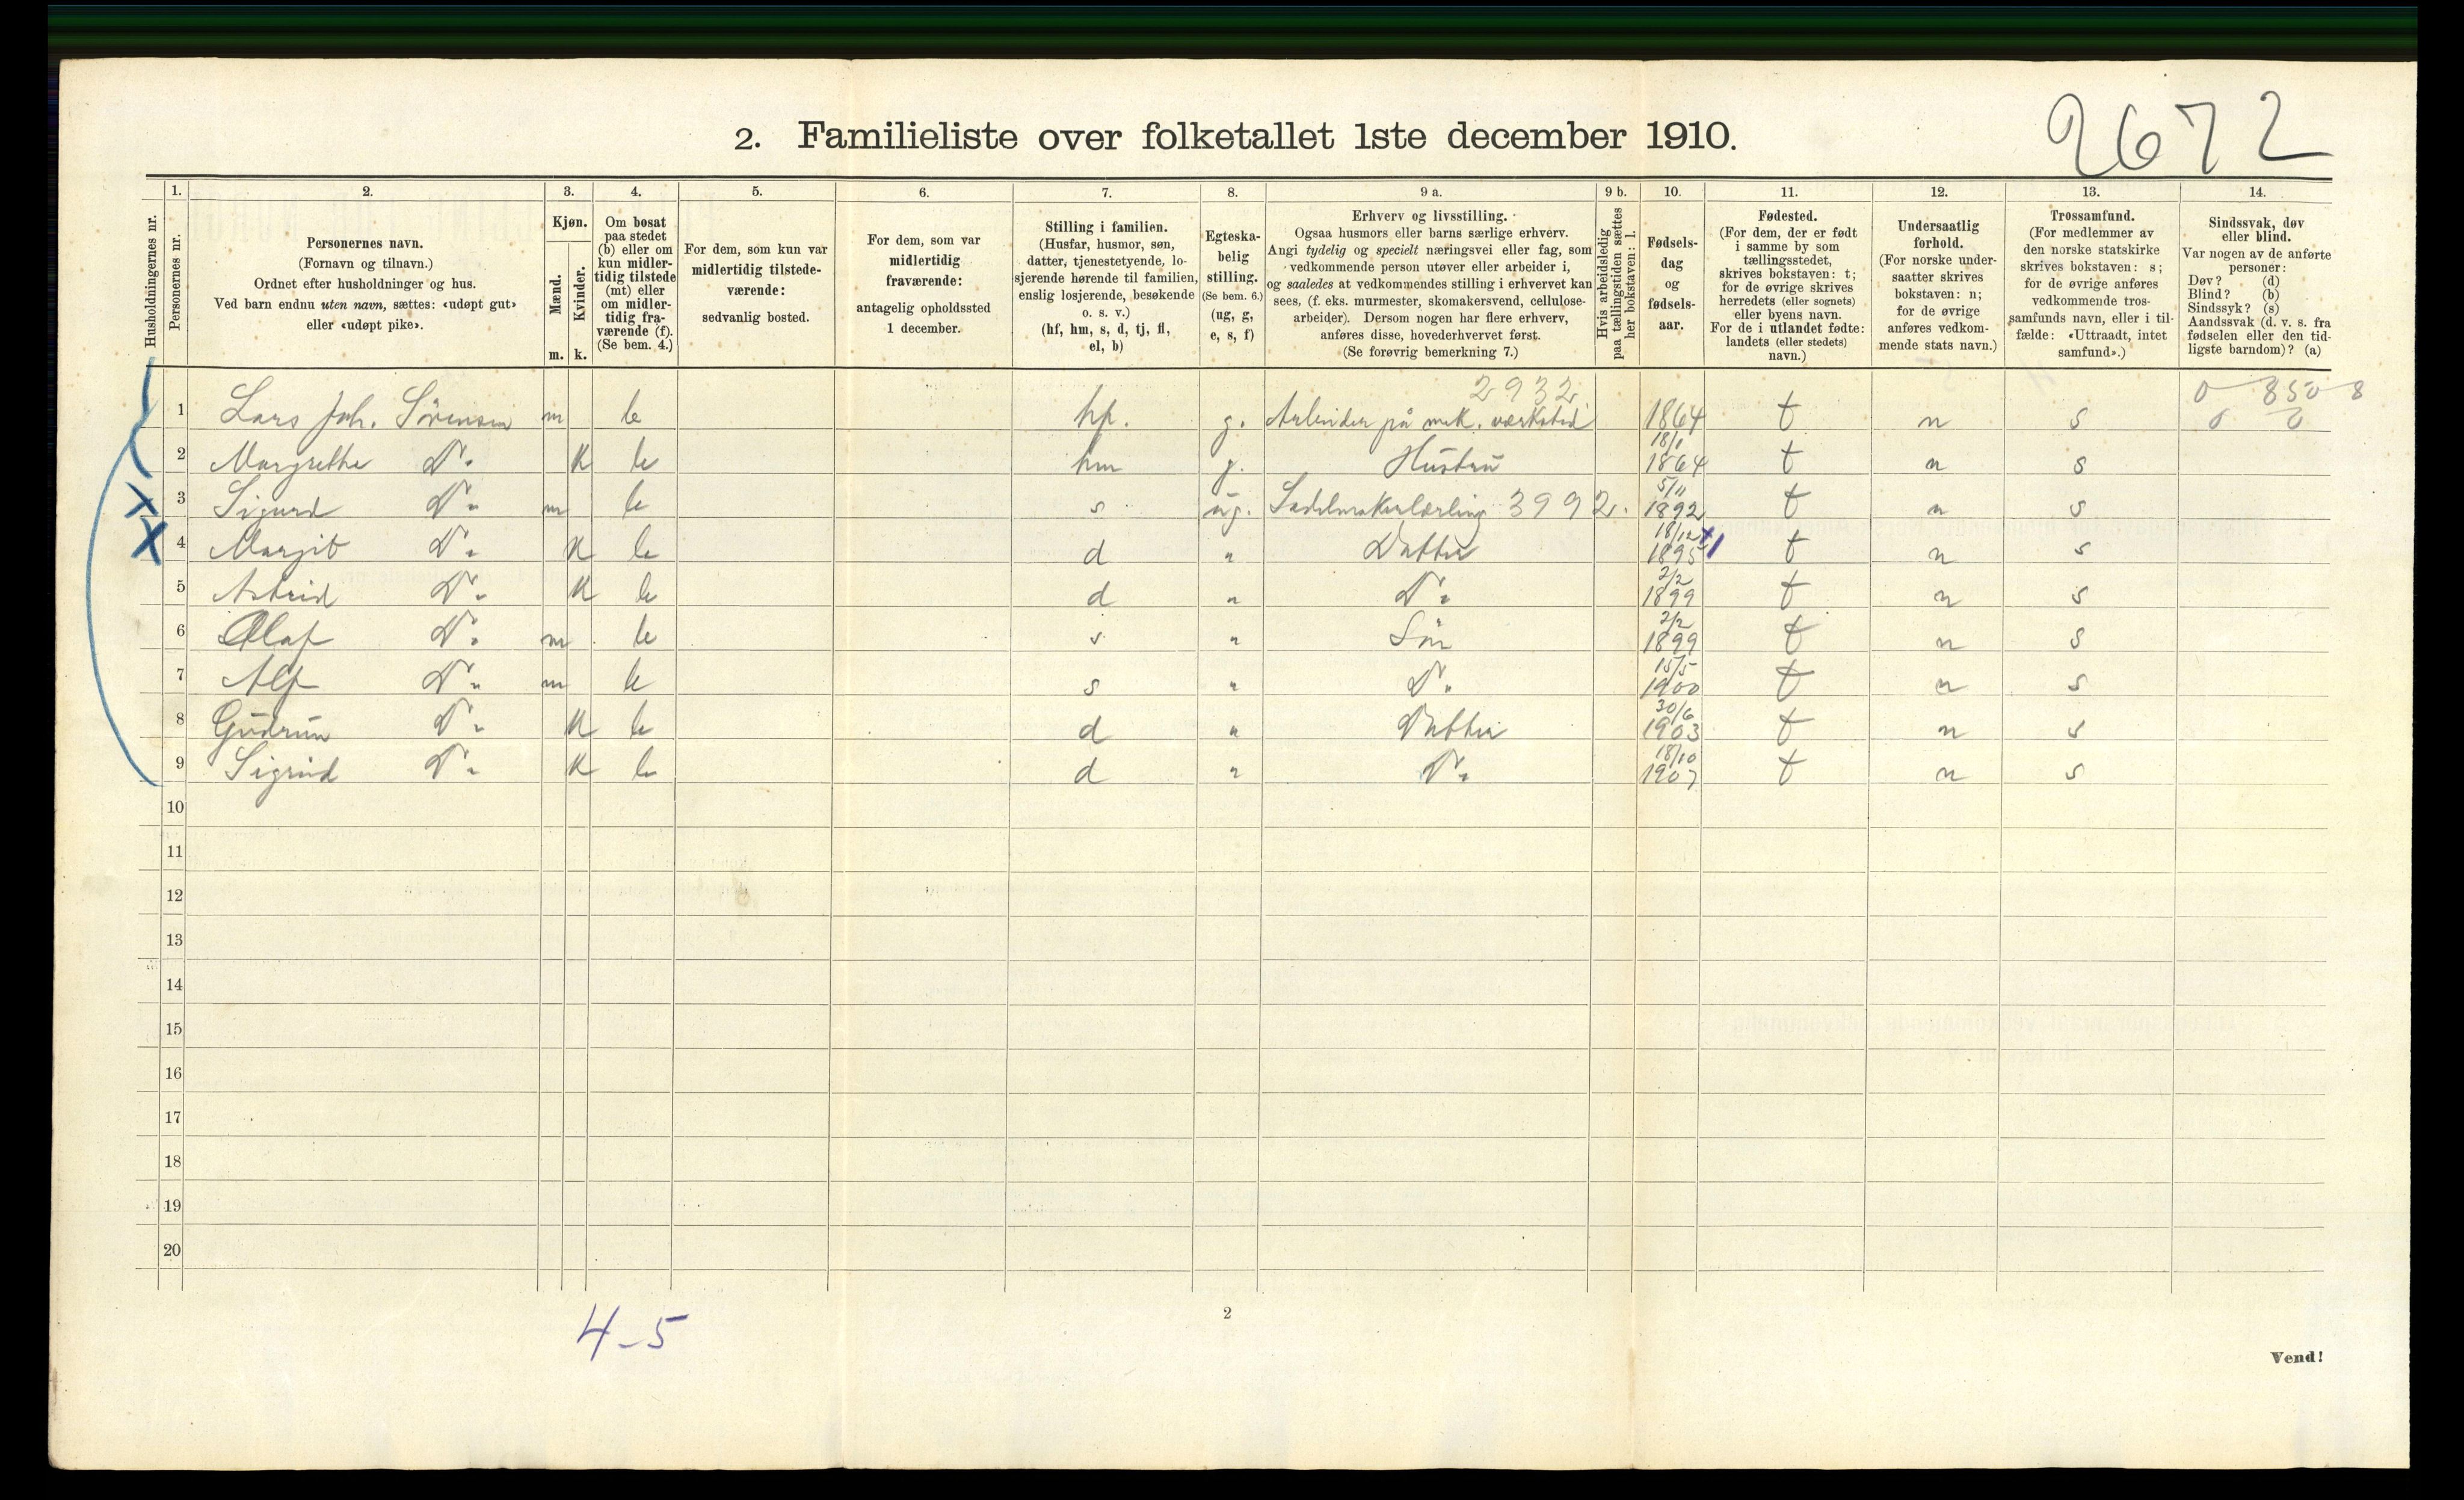 9672
2. Familieliste over folketallet 1ste december 1910.
1. 2. 3. 4. 5. 6. 7. 8. 9 a. 9 b. 10. 11. 12. 13. 14.
Husholdningernes nr.
Personernes nr.
Personernes navn.
(Fornavn og tilnavn.)
Ordnet efter husholdninger og hus.
Ved barn endnu uten navn, sættes: «udøpt gut»
eller «udøpt pike».
Kjøn.
Mænd.
Kvinder.
m. k.
Om bosat
paa stedet
(b) eller om
kun midler-
tidig tilstede
(mt) eller
om midler-
tidig fra-
værende (f).
(Se bem. 4.)
For dem, som kun var
midlertidig tilstede-
værende:
sedvanlig bosted.
For dem, som var
midlertidig
fraværende:
antagelig opholdssted
1 december.
Stilling i familien.
(Husfar, husmor, søn,
datter, tjenestetyende, lo-
sjerende hørende til familien,
enslig losjerende, besøkende
o. s. v.)
(hf, hm, s, d, tj, fl,
el, b)
Egteska-
belig
stilling.
(Se bem. 6.)
(ug, g,
e, s, f)
Erhverv og livsstilling.
Ogsaa husmors eller barns særlige erhverv.
Angi tydelig og specielt næringsvei eller fag, som
vedkommende person utøver eller arbeider i,
og saaledes at vedkommendes stilling i erhvervet kan
sees, (f. eks. murmester, skomakersvend, cellulose-
arbeider). Dersom nogen har flere erhverv,
anføres disse, hovederhvervet først.
(Se forøvrig bemerkning 7.)
Hvis arbeidsledig
paa tællingstiden sættes
her bokstaven: l.
Fødsels-
dag
og
fødsels-
aar.
Fødested.
(For dem, der er født
i samme by som
tællingsstedet,
skrives bokstaven: t;
for de øvrige skrives
herredets (eller sognets)
eller byens navn.
For de i utlandet fødte:
landets (eller stedets)
navn.)
Undersaatlig
forhold.
(For norske under-
saatter skrives
bokstaven: n;
for de øvrige
anføres vedkom-
mende stats navn.)
Trossamfund.
(For medlemmer av
den norske statskirke
skrives bokstaven: s;
for de øvrige anføres
vedkommende tros-
samfunds navn, eller i til-
fælde: «Uttraadt, intet
samfund».)
Sindssvak, døv
eller blind.
Var nogen av de anførte
personer:
Døv? (d)
Blind? (b)
Sindssyk? (s)
Aandssvak (d. v. s. fra
fødselen eller den tid-
ligste barndom)? (a)
2932. 0 8508
1 Lars Joh. Sörensen m b hf. g. Arbeider på mek. værksted 1864 t n s 0 0
2 Margrethe Do. k b hm g. Hustru 18/1 1864 t n s
3 Sigurd Do. m b s ug. Sadelmakerlærling 3992. 5/11 1892 t n s
4 Margit Do. k b d " Datter 18/12 1895 t n s
5 Astrid Do. k b d " Do. 2/2 1899 t n s
6 Olaf Do. m b s " Sön 2/2 1899 t n s
7 Alf Do. m b s " Do. 15/5 1900 t n s
8 Gudrun Do. k b d " Datter 30/6 1903 t n s
9 Sigrid Do. k b d " Do. 18/10 1907 t n s
10
11
12
13
14
15
16
17
18
19
20
4-5
2
Vend!